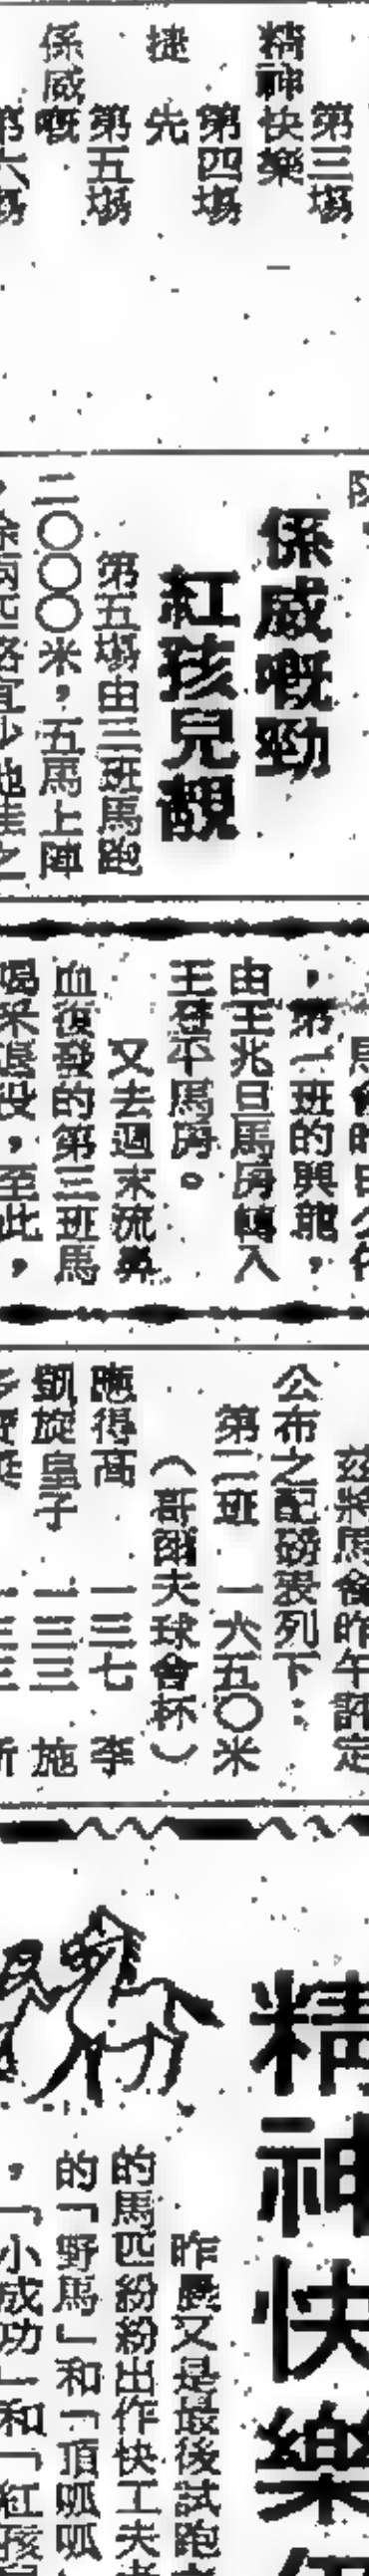 第三場
精神快樂
第四場
捷先
第五場
係威嘅
係威嘅勁
紅孩兒靚
第五場由三班馬跑
二〇〇〇米，五馬上陣
，第一班的興龍，
由王兆旦馬房轉入
王登平馬房。
又去週末流鼻
血復發的第三班馬
喝采退役，至此，
茲將馬會昨午評定
公布之配磅表列下：
第二班 一六五〇米
（哥爾夫球會杯）
應得高 一三七 李
凱旋皇子 一三三 施
精神快樂
昨晨又是最後試跑
的馬匹紛紛出作快工夫
的「野馬」和「頂呱呱
，「小成功」和「紅孩